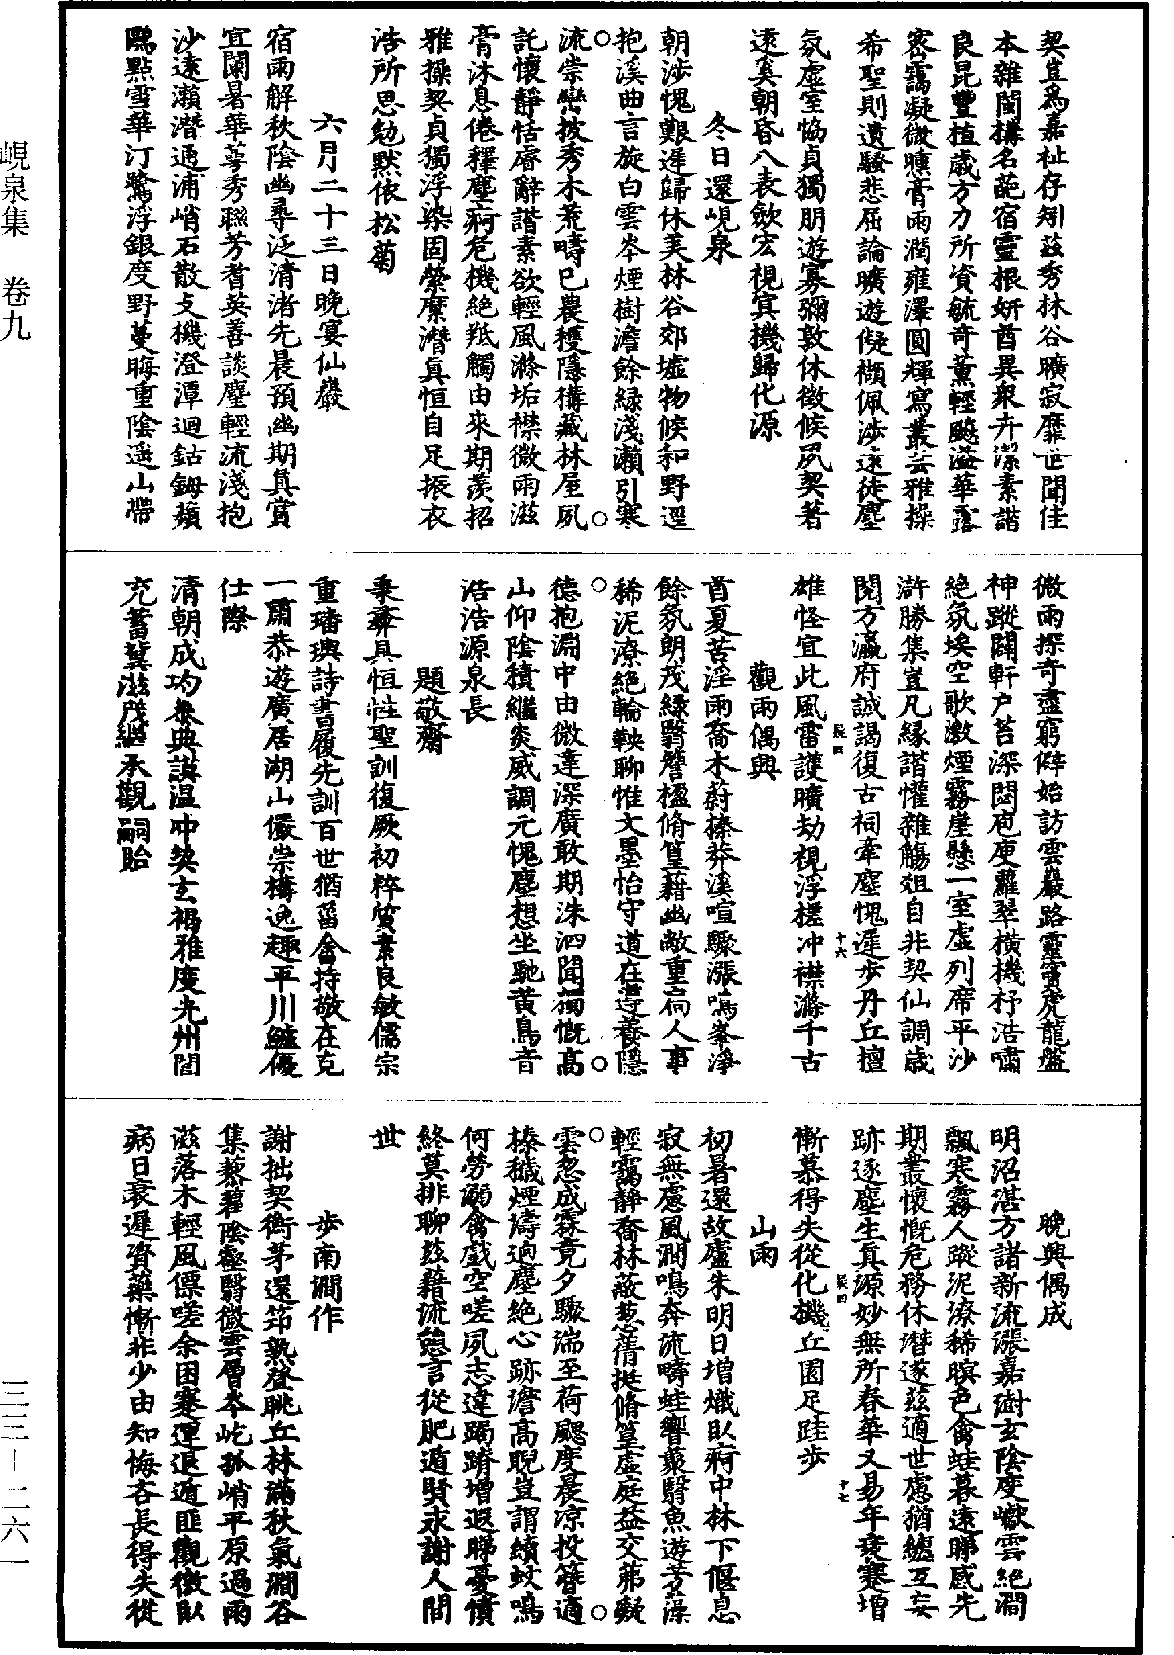 契豈爲嘉祉存矧茲秀林谷曠寂靡世聞佳
本雜蘭構名葩宿靈根妍酋異衆卉潔素諧
良昆豐植歲方力所資毓奇薰輕颸溢華露
密靄凝微曛膏雨潤雍澤圓輝寫叢芸雅操
希聖則遺騷悲屈論曠遊儗欄佩涉遠徒塵
氛虛室恊貞獨朋遊寡彌敦休徵候夙契著
遠奚朝昏八表歛宏視冥機歸化源
冬日還峴泉
朝涉愧艱遲歸休美林谷郊墟物候和野逕
抱溪曲言旋白雲岑煙樹澹餘緑淺瀨引寒
流崇巒披秀木荒疇已農穫隱構藏林屋夙
託懷靜恬睿辭諧素欲輕風滌垢襟微雨滋
膏沐息倦釋塵痾危機絶羝觸由來期羨招
雅操契貞獨浮染固縈縻潛真恒自足振衣
浩所思勉默依松菊
六月二十三日晚宴仙巖
宿雨解秋陰幽尋泛清渚先晨預幽期真賞
宜闌暑華萼秀聯芳耆英善談麈輕流淺抱
沙遠瀨潛通浦峭石散支機澄潭迴鈷鉧蘋
鷗點雪華汀鷺浮銀度野蔓晦重陰遥山帶
微雨探奇盡窮僻始訪雲巖路靈窩虎龍盤
神蹤闢軒户苔深閟庖㢆蘿翠横機杼浩嘯
絶氛埃空歌激煙霧崖懸一室虛列席平沙
滸勝集豈凡緣諧懽雜觴俎自非契仙調歲
閱方瀛府誠謁復古祠牽塵愧遲步丹丘擅
雄怪宜此風雷護曠劫視浮槎冲襟滌千古
觀雨偶興
首夏苦淫雨喬木蔚榛莽溪喧驟漲鳴峯淨
餘氛朗茂緑翳簷楹脩篁藉幽敞重扃人事
稀泥潦絶輪鞅聊惟文墨怡守道在尊養隱
德抱淵中由微達深廣敢期洙泗聞獨慨高
山仰陰積繼炎威調元愧塵想坐馳黄鳥音
浩浩源泉長
題敬齋
秉彝具恒性聖訓復厥初粹質素良敏儒宗
重璠璵詩書履先訓百世猶菑畬持敬在克
一肅恭遊廣居湖山儼崇構逸趣平川鱸優
仕際
清朝成均參典謨温冲契玄褐雅度光州閭
充蓄冀滋茂繼承觀嗣貽
晚興偶成
明沼湛方諸新流漲嘉澍玄陰度巘雲絶澗
飄寒霧人蹤泥潦稀暝色禽蛙暮遠睇感先
期叢懷慨危務休潛遂茲適世慮猶纏互妄
跡逐塵生真源妙無所春華又易年衰蹇增
慚慕得失從化機丘園足跬步
山雨
初暑還故廬朱明日增熾卧痾中林下偃息
寂無慮風澗鳴奔流疇蛙響叢翳魚遊芳藻
輕靄靜喬林蔽葱蒨挺脩篁虛庭益交苐凝
雲忽成霖竟夕驟湍至荷颸度晨凉投簪適
榛穢煙濤迥塵絶心跡澹高睨豈謂績蚊鳴
何勞顧禽戲空嗟夙志違躅躋增遐睇憂憤
終莫排聊茲藉流憩言從肥遁賢永謝人間
世
步南澗作
謝拙契衡茅還笻熟登眺丘林滿秋氣澗谷
集藜碧陰壑翳微雲層岑屹孤峭平原過雨
滋落木輕風僄嗟余困蹇運退遁匪觀徼卧
病日衰遲資藥慚非少由知悔吝長得失從
峴泉集 卷九
三三－二六一
晁四 十六
晁四 十七